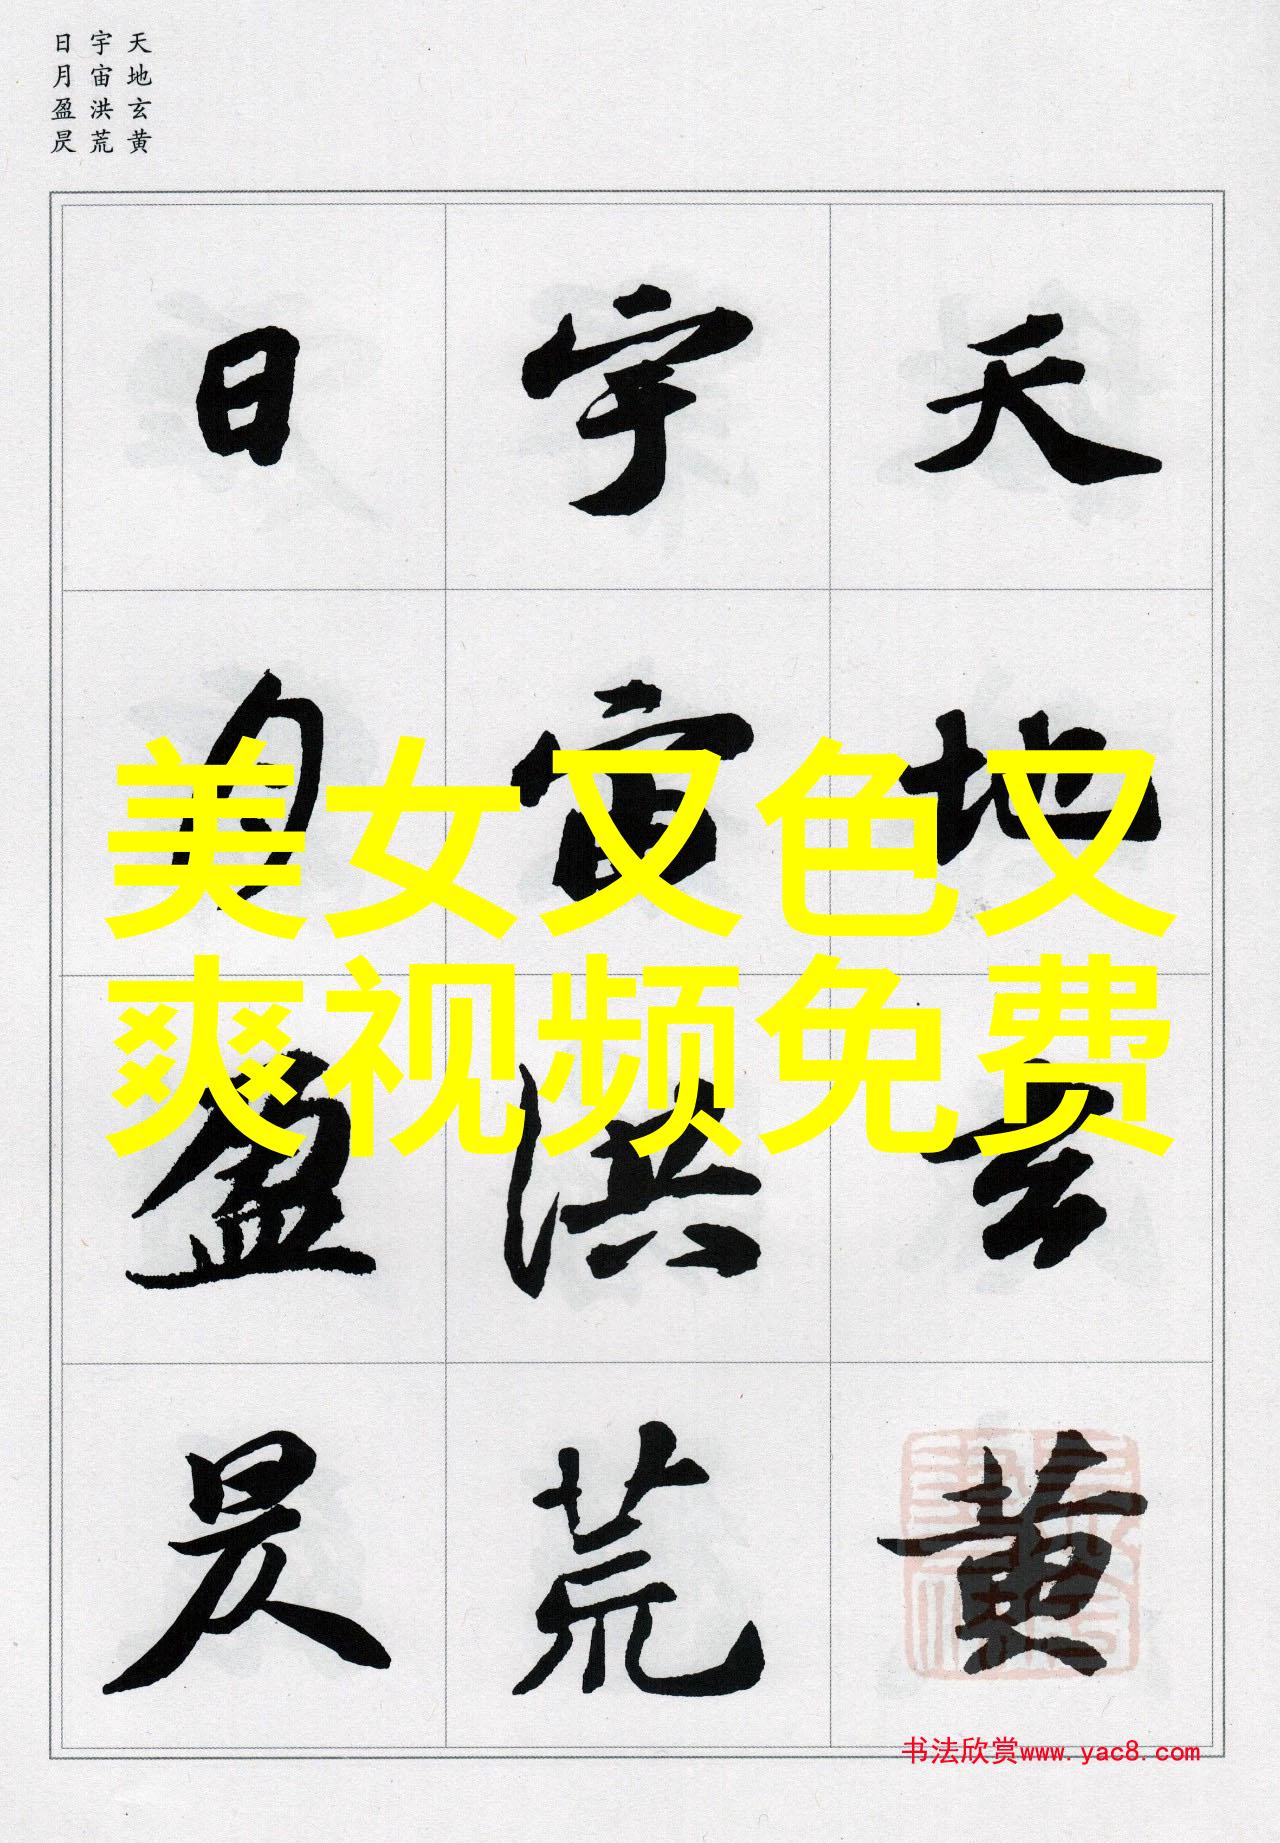 天地玄黄
宇宙洪荒
日月盈昃
天地玄黄
宇宙洪荒
日月盈昃
美女又色又
爽视频免费
书法欣赏www.yac8.com